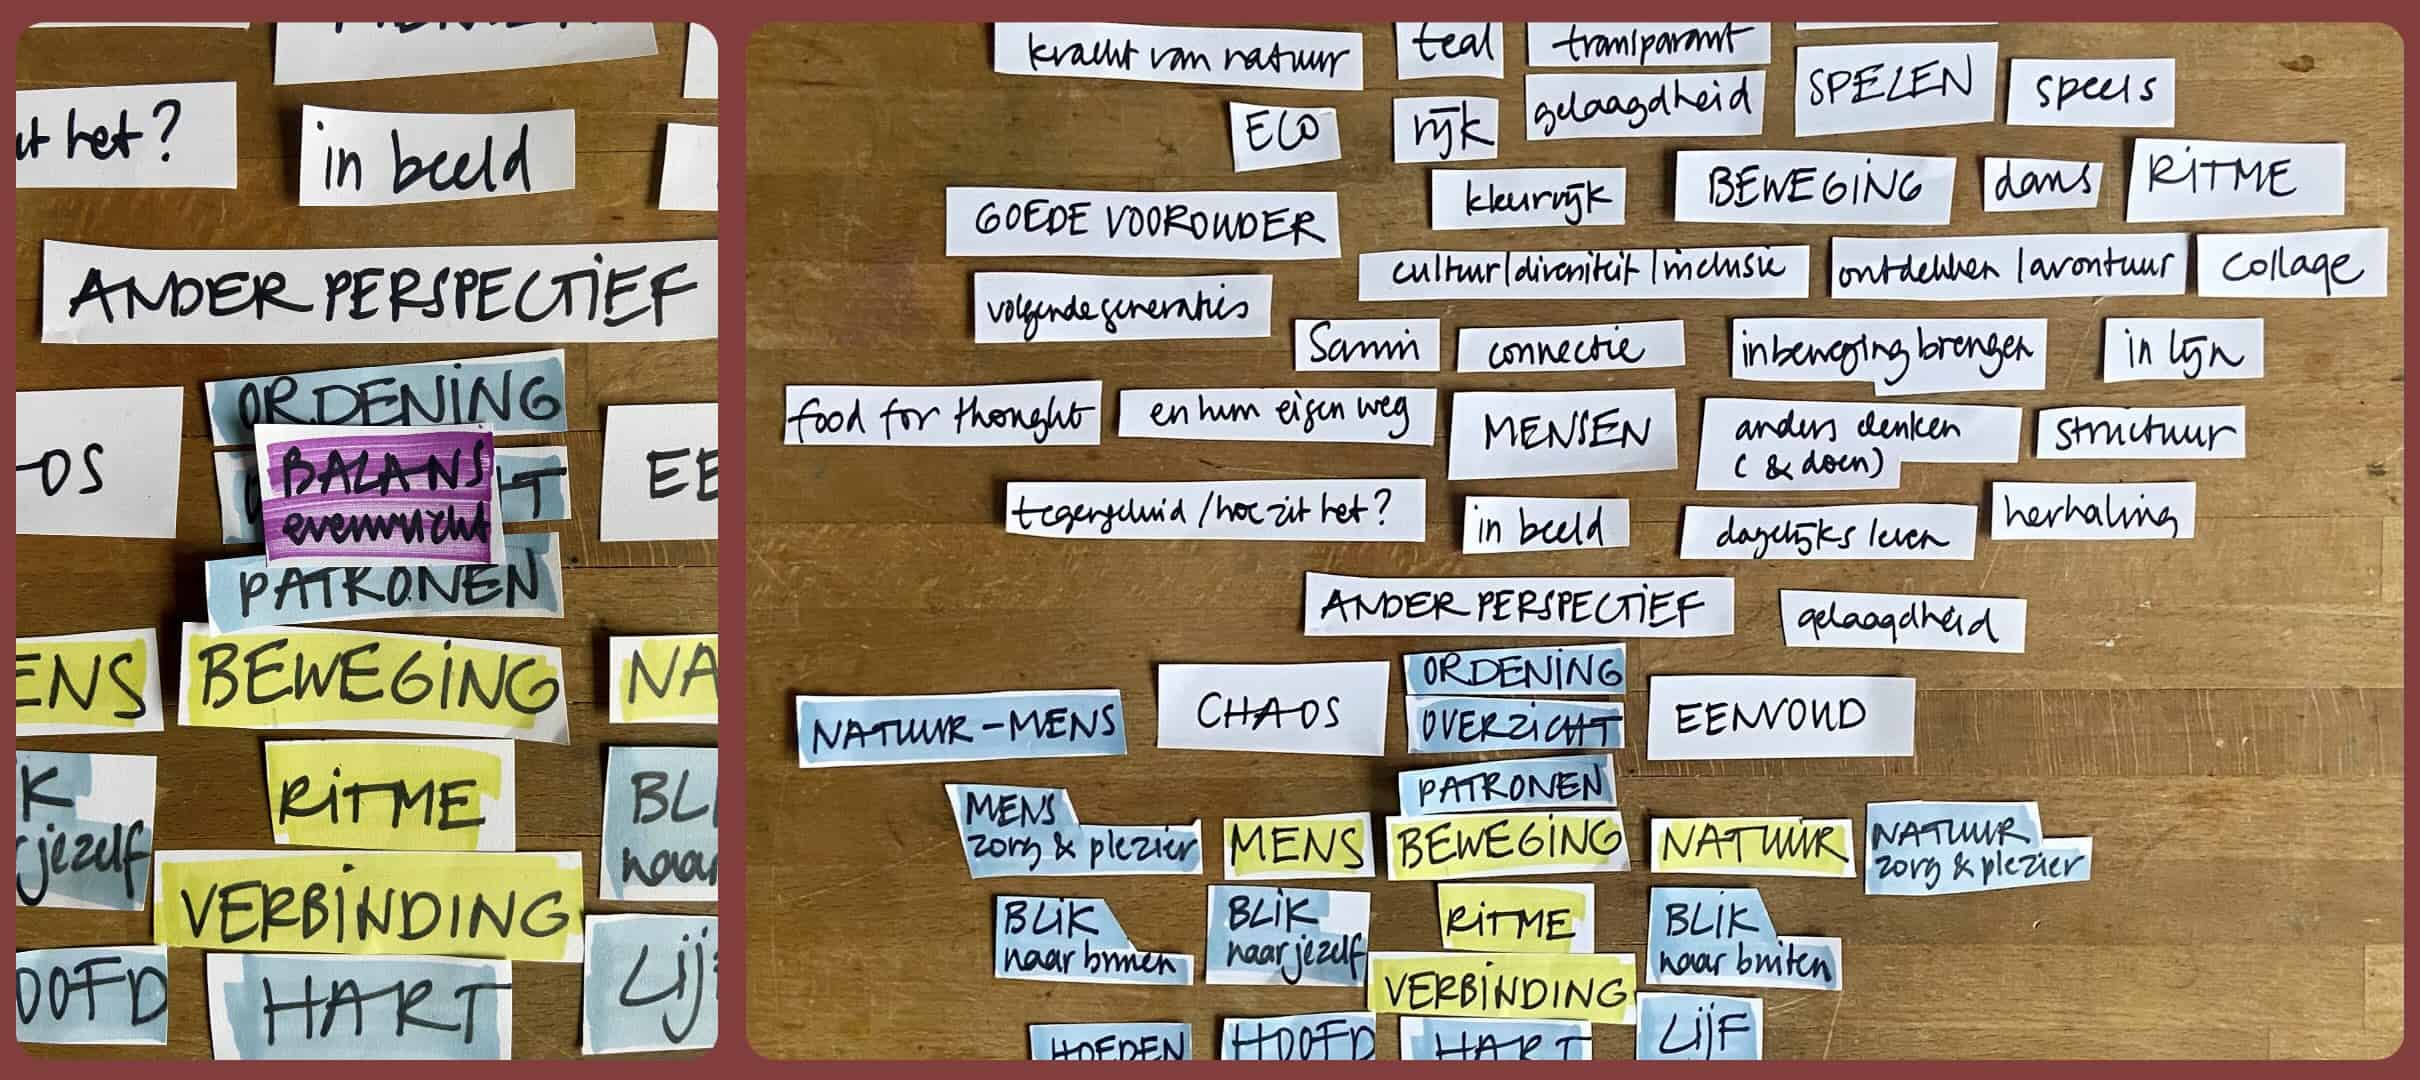 ut het?
in beeld
ANDER PERSPECTIEF
ORDENING
OS
BALANS
evenwicht
T
EE
PATRONEN
ENS
BEWEGING
NA
K
jezelf
RITME
BL
naar
VERBINDING
OOFD
HART
LIJ
kracht van natuur
teal
transparant
ECO
rijk
gelaagdheid
SPELEN
speels
GOEDE VOOROUDER
kleurrijk
BEWEGING
dans
RITME
volgende generaties
cultuur/diversiteit/inclusie
ontdekken/avontuur
collage
Samen
connectie
in beweging brengen
in lijn
food for thought
en hum eigen weg
MENSEN
anders denken
(& doen)
structuur
tegengeluid/hoe zit het?
in beeld
dagelijks leven
herhaling
ANDER PERSPECTIEF
gelaagdheid
NATUUR-MENS
CHAOS
ORDENING
OVERZICHT
EENVOUD
PATRONEN
MENS
zorg & plezier
MENS
BEWEGING
NATUUR
NATUUR
zorg & plezier
BLIK
naar binnen
BLIK
naar jezelf
RITME
BLIK
naar buiten
VERBINDING
HOEDEN
HOOFD
HART
LIJF